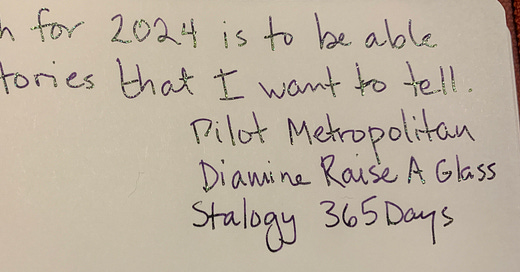 for 2024 is to be able
that I want to tell.
Pilot Metropolitan
Diamine Raise A Glass
Stalogy 365 Days